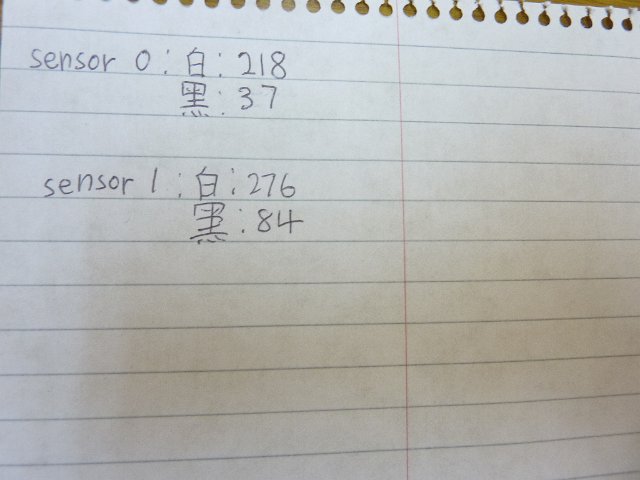 sensor 0 : 白 : 218
黑 : 37
sensor 1 : 白 : 276
黑 : 84